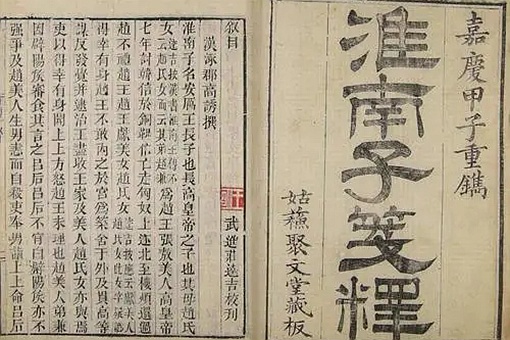 嘉慶甲子重鐫
淮南子箋釋
姑蘇聚文堂藏板
叙目
漢涿郡高誘撰
武進莊逵吉校刊
淮南子名安厲王長子也長高皇帝之子也其母趙氏
女為趙王張敖美人高皇帝
七年討韓信於銅鞮信亡走匈奴上遂北至樓煩還過
趙不禮趙王趙王獻美女趙氏女
得幸有身趙王不敢內之於宮為築舍于外及貫高等
謀反發覺并逮治王盡收王家及美人趙氏女亦與焉
吏以得幸有身聞上上方怒趙王未理也趙美人弟兼
因辟陽侯審食其言之呂后呂后不肯白辟陽侯亦不
強爭及趙美人生男恚而自殺吏奉男詣上上命呂后